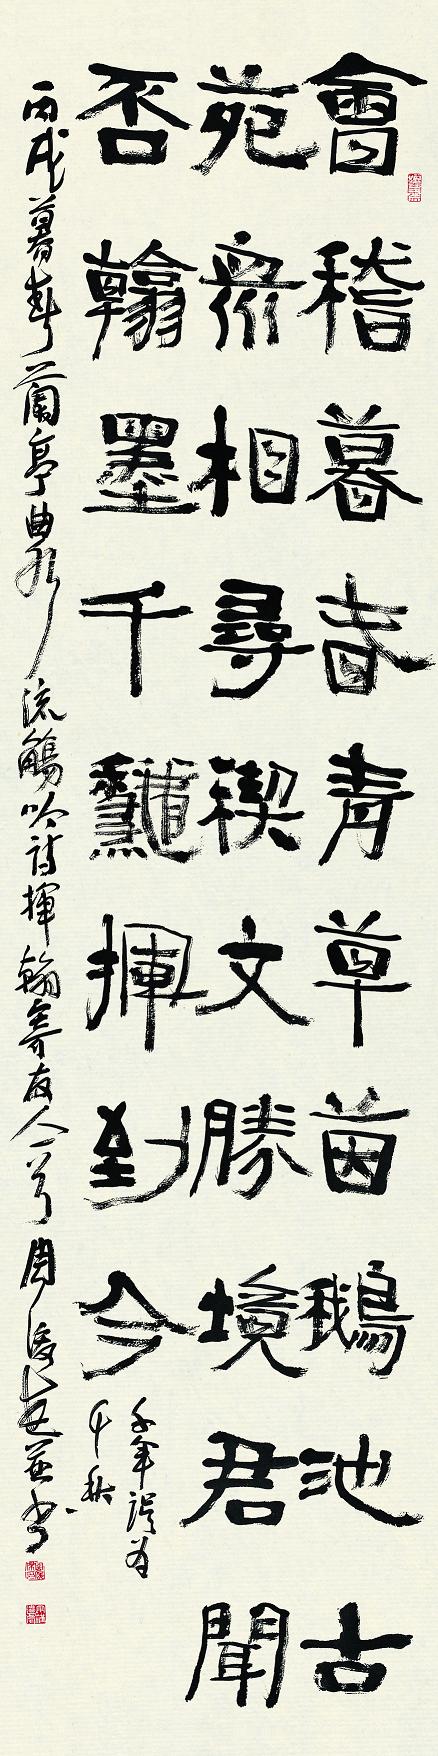 會稽暮春青草茵鵝池古
苑眾相尋禊文勝境君聞
否翰墨千龝揮到今
千年誤為
千秋
丙戌暮春蘭亭曲水流觴吟詩揮翰寄友人一首周俊杰並書